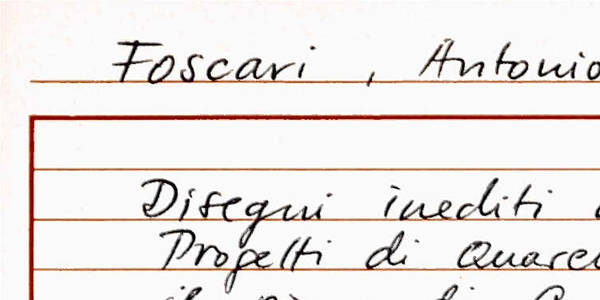 Foscari, Antonio
Disegni inediti
Progetti di Quaren